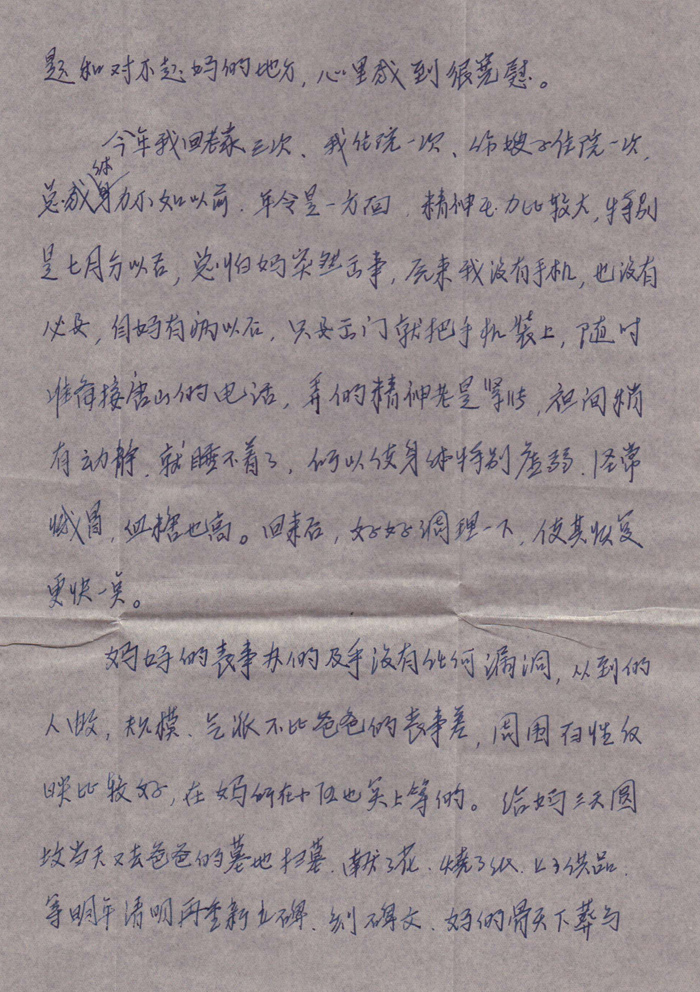 题和对不起妈的地方，心里感到很宽慰。
今年我回老家三次、我住院一次、你嫂子住院一次，
总感身体力不如以前．年令是一方面，精神压力比较大，特别
是七月分以后，总怕妈突然出事，原来我没有手机，也没有
必要，自妈有病以后，只要出门就把手机装上，随时
准备接唐山的电话，弄的精神老是紧张，夜间稍
有动静．就睡不着了，所以使身体特别虚弱．经常
感冒，血糖也高。回来后，好好调理一下，使其恢复
更快一点。
妈妈的丧事办的几乎没有任何漏洞，从到的
人数，规模．气派不比爸爸的丧事差，周围百姓反
映比较好，在妈所在小区也算上等的。给妈三天圆
坟当天又去爸爸的墓地扫墓．献了花．烧了纸．上了供品．
等明年清明再重新立碑．刻碑文．妈的骨灰下葬与